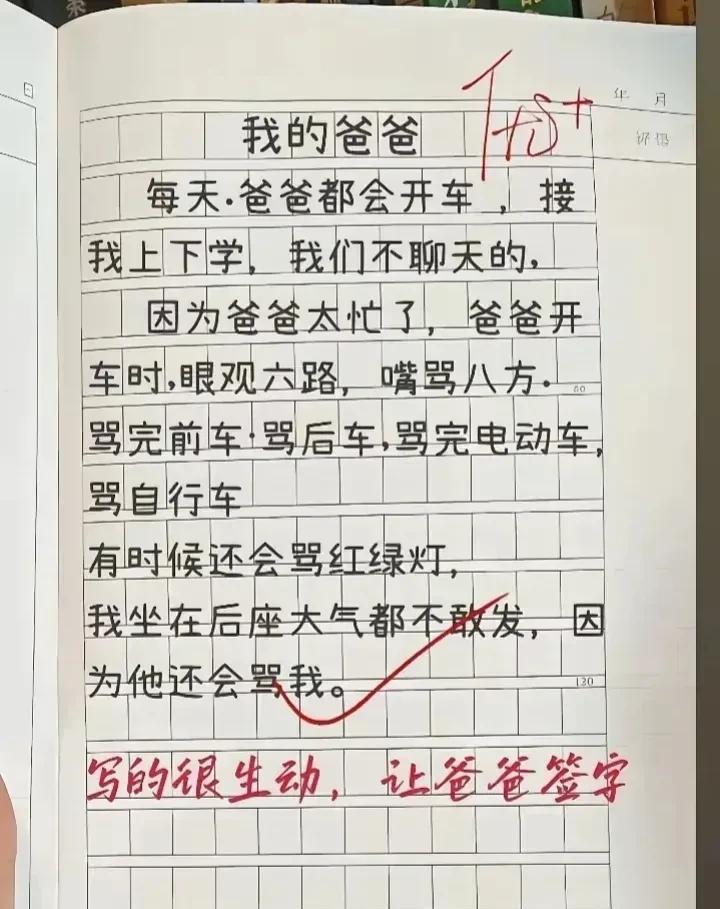 年 月
优+
我的爸爸
每天·爸爸都会开车，接
我上下学，我们不聊天的，
因为爸爸太忙了，爸爸开
车时，眼观六路，嘴骂八方·
80
骂完前车·骂后车，骂完电动车，
骂自行车
有时候还会骂红绿灯，
我坐在后座大气都不敢发，因
为他还会骂我。
120
写的很生动，让爸爸签字